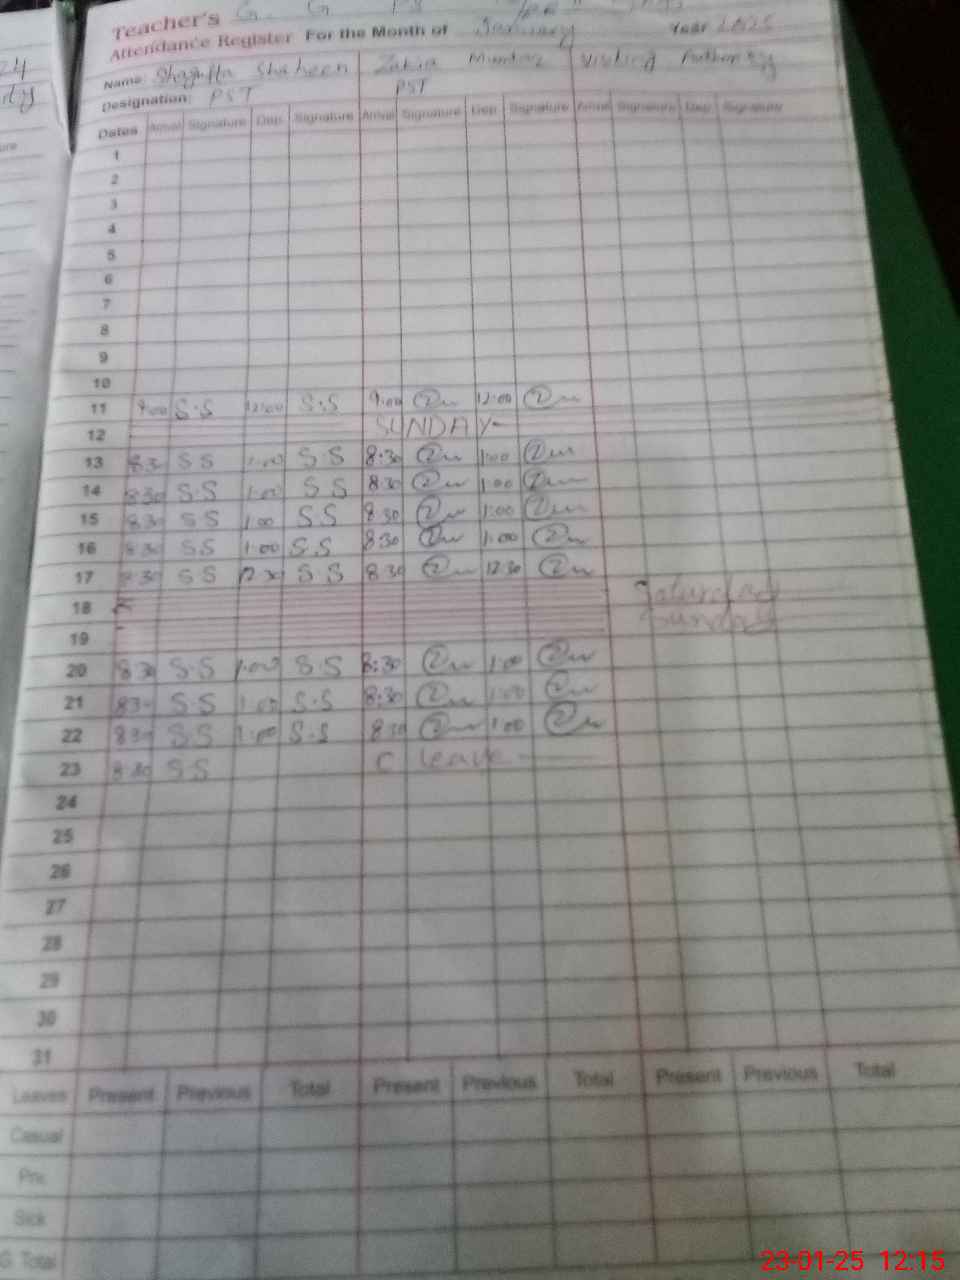 Teacher's G. G. PS
Attendance Register For the Month of January Year 2025
Name: Shagufta Shaheen Zakia Mumtaz Visiting Authority
Designation: PST PST
Dates Arrival Signature Dep: Signature Arrival Signature Dep: Signature Arrival Signature Dep: Signature
1
2
3
4
5
6
7
8
9
10
11 9:00 S.S 12:00 S.S 9:00 12:00
12 SUNDAY
13 8:30 SS 1:00 S.S 8:30 1:00
14 8:30 SS 1:00 SS 8:30 1:00
15 8:30 SS 1:00 SS 8:30 1:00
16 8:30 SS 1:00 S.S 8:30 1:00
17 8:30 SS 12:30 S S 8:30 12:30
18 Saturday
19 Sunday
20 8:30 S.S 1:00 S.S 8:30 1:00
21 8:30 S.S 1:00 S.S 8:30 1:00
22 8:30 SS 1:00 S.S 8:30 1:00
23 8:30 SS C leave
24
25
26
27
28
29
30
31
Leaves Present Previous Total Present Previous Total Present Previous Total
Casual
Priv.
Sick
G. Total
23-01-25 12:15